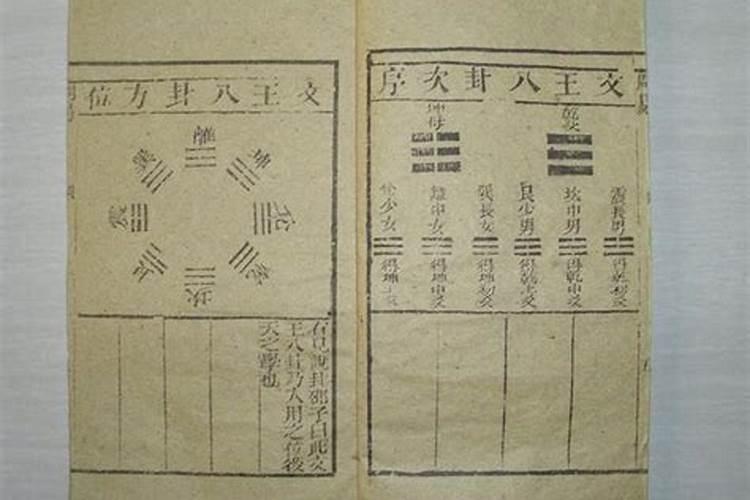 文王八卦次序
乾父
坤母
震長男
坎中男
艮少男
巽長女
離中女
兌少女
得乾初爻
得乾中爻
得乾上爻
得坤初爻
得坤中爻
得坤上爻
文王八卦方位
離
坤
兌
乾
坎
艮
震
巽
右見說卦邵子曰此文
王八卦乃入用之位後
天之學也